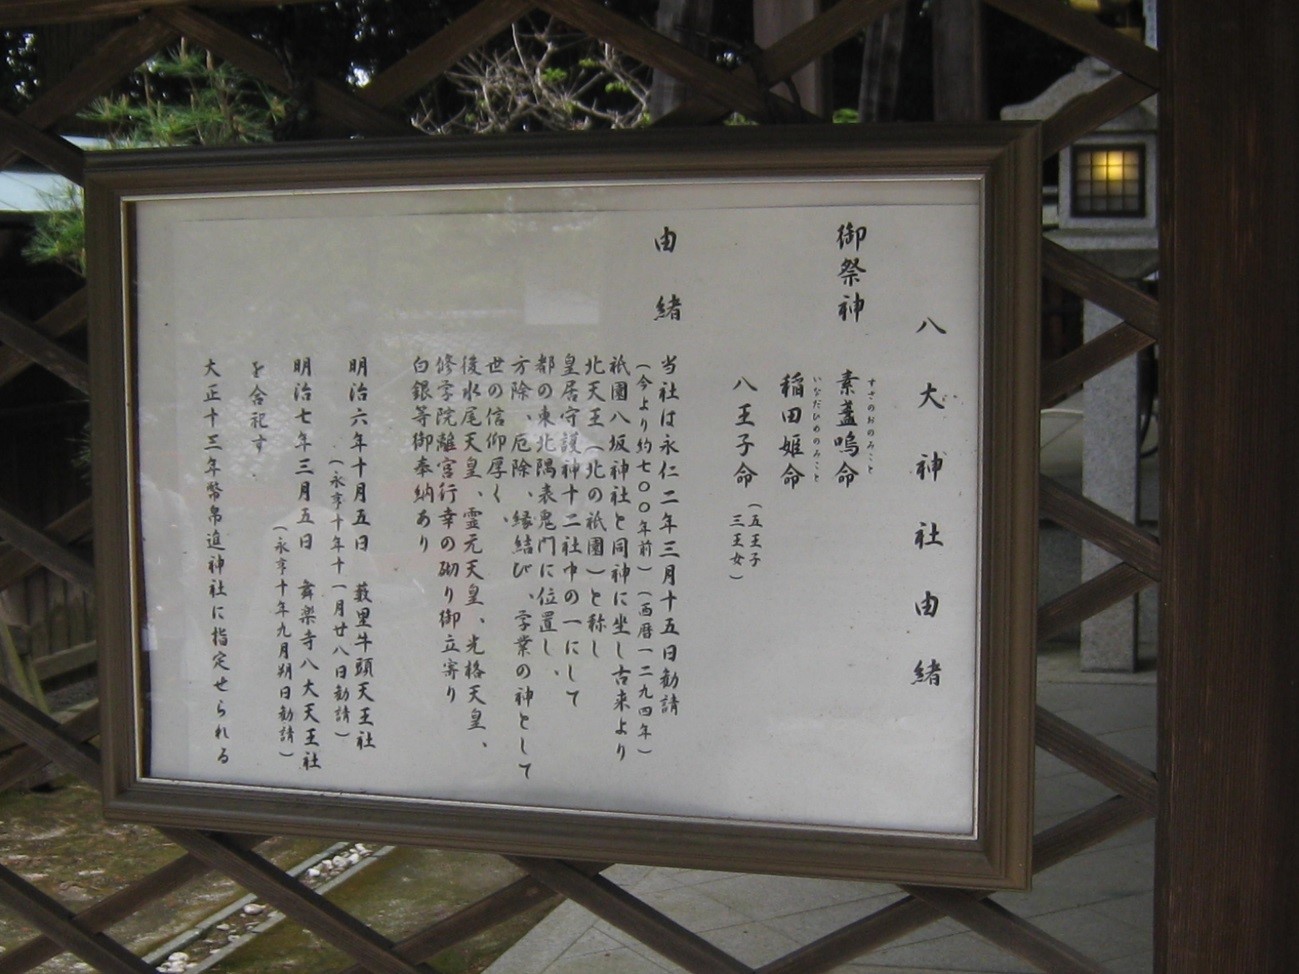 八大神社由緒
御祭神 素盞嗚命
すさのおのみこと
稲田姫命
いなだひめのみこと
八王子命(五王子
三王女)
由緒
当社は永仁二年三月十五日勧請
(今より約七〇〇年前)(西暦一二九四年)
祇園八坂神社と同神に坐し古来より
北天王(北の祇園)と称し
皇居守護神十二社中の一にして
都の東北隅表鬼門に位置し、
方除、厄除、縁結び、学業の神として
世の信仰厚く、
後水尾天皇、霊元天皇、光格天皇、
修学院離宮行幸の砌り御立寄り
白銀等御奉納あり
明治六年十月五日 薮里牛頭天王社
(永享十年十一月廿八日勧請)
明治七年三月五日 舞楽寺八大天王社
(永享十年九月朔日勧請)
を合祀す
大正十三年幣帛進神社に指定せられる